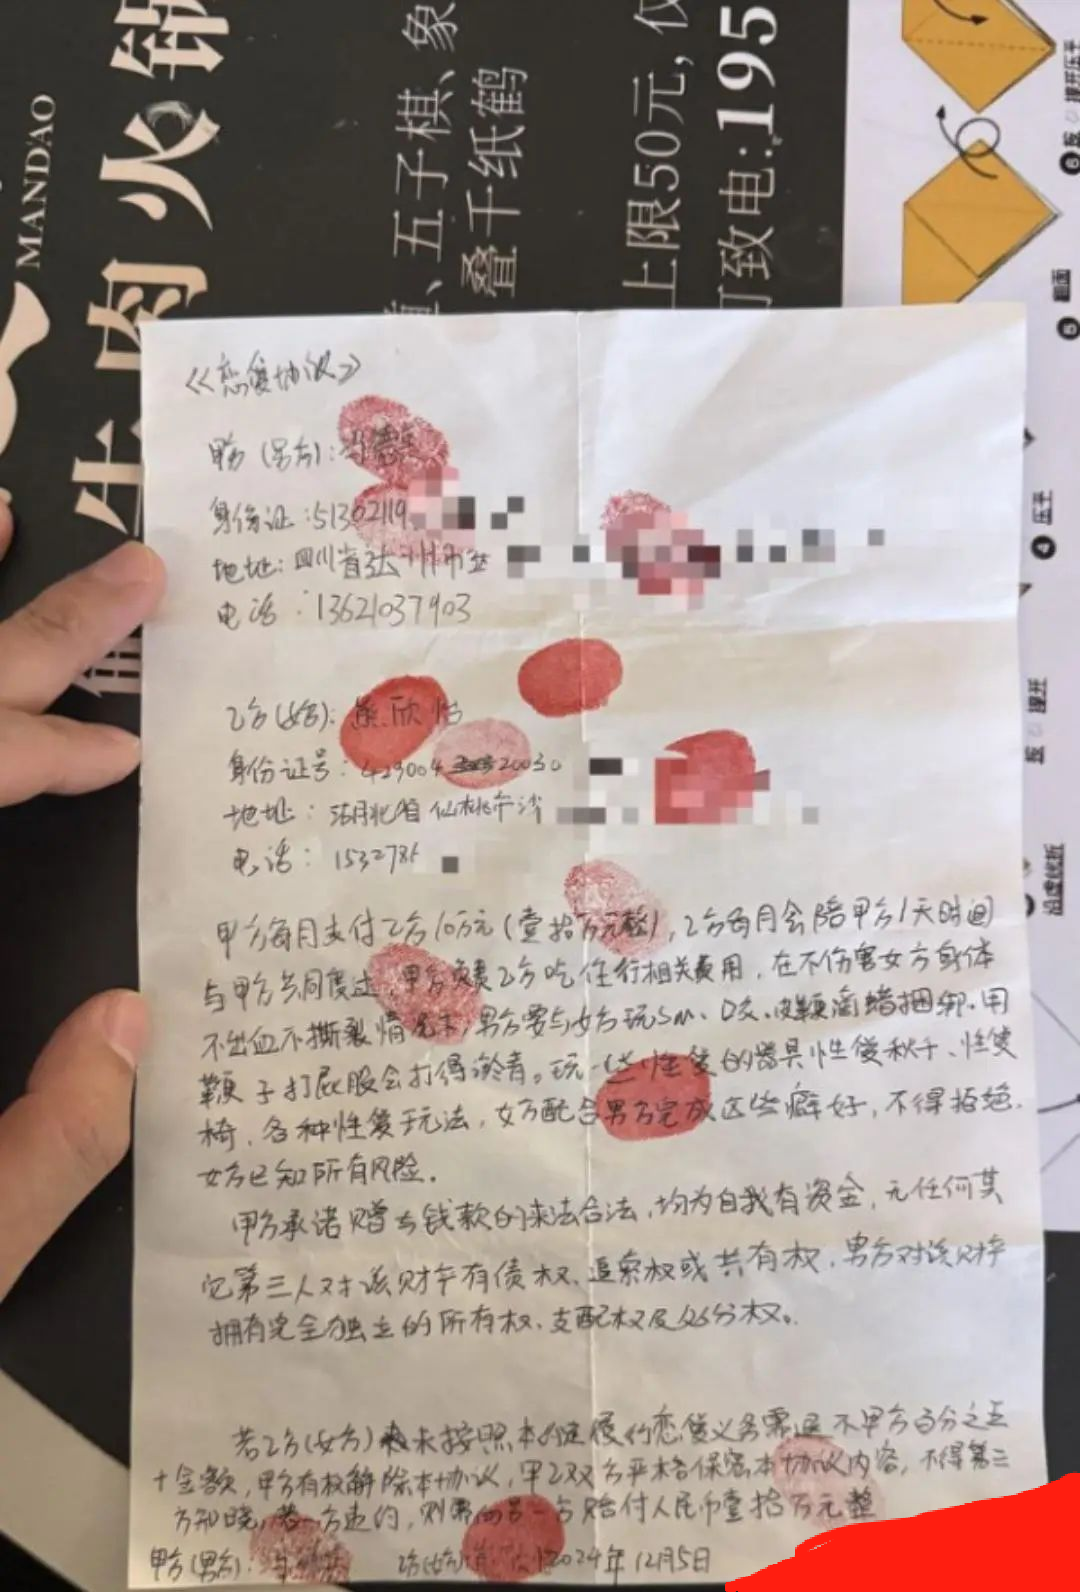 MANDAO
生肉火锅
、五子棋、象
叠千纸鹤
上限50元，仅
可致电:195
压平
翻面
沿虚线折
《恋爱协议》
甲方（男方）：
身份证：51302119
地址：四川省达州市
电话：13621037903
乙方（女方）：熊欣怡
身份证号：429004 20030
地址：湖北省仙桃市沙
电话：153278
甲方每月支付乙方10万元（壹拾万元整），乙方每月会陪甲方1天时间
与甲方共同度过，甲方负责乙方吃住行相关费用，在不伤害女方身体
不出血不撕裂情况下，男方要与女方玩sm、口交、皮鞭滴蜡捆绑、用
鞭子打屁股会打得淤青。玩一些性爱的器具性爱秋千、性爱
椅，各种性爱玩法，女方配合男方完成这些癖好，不得拒绝.
女方已知所有风险.
甲方承诺赠与钱款的来法合法，均为自我有资金，无任何其
它第三人对该财产有债权、追索权或共有权，男方对该财产
拥有完全独立的所有权、支配权及处分权。
若乙方（女方）未按照本 履行恋爱义务需退 甲方百分之五
十金额，甲方有权解除本协议，甲乙双方严格保密本协议内容，不得第三
方知晓，若一方违约，则 另一方赔付人民币壹拾万元整
甲方（男方）： 乙方（女方） 2024年12月5日